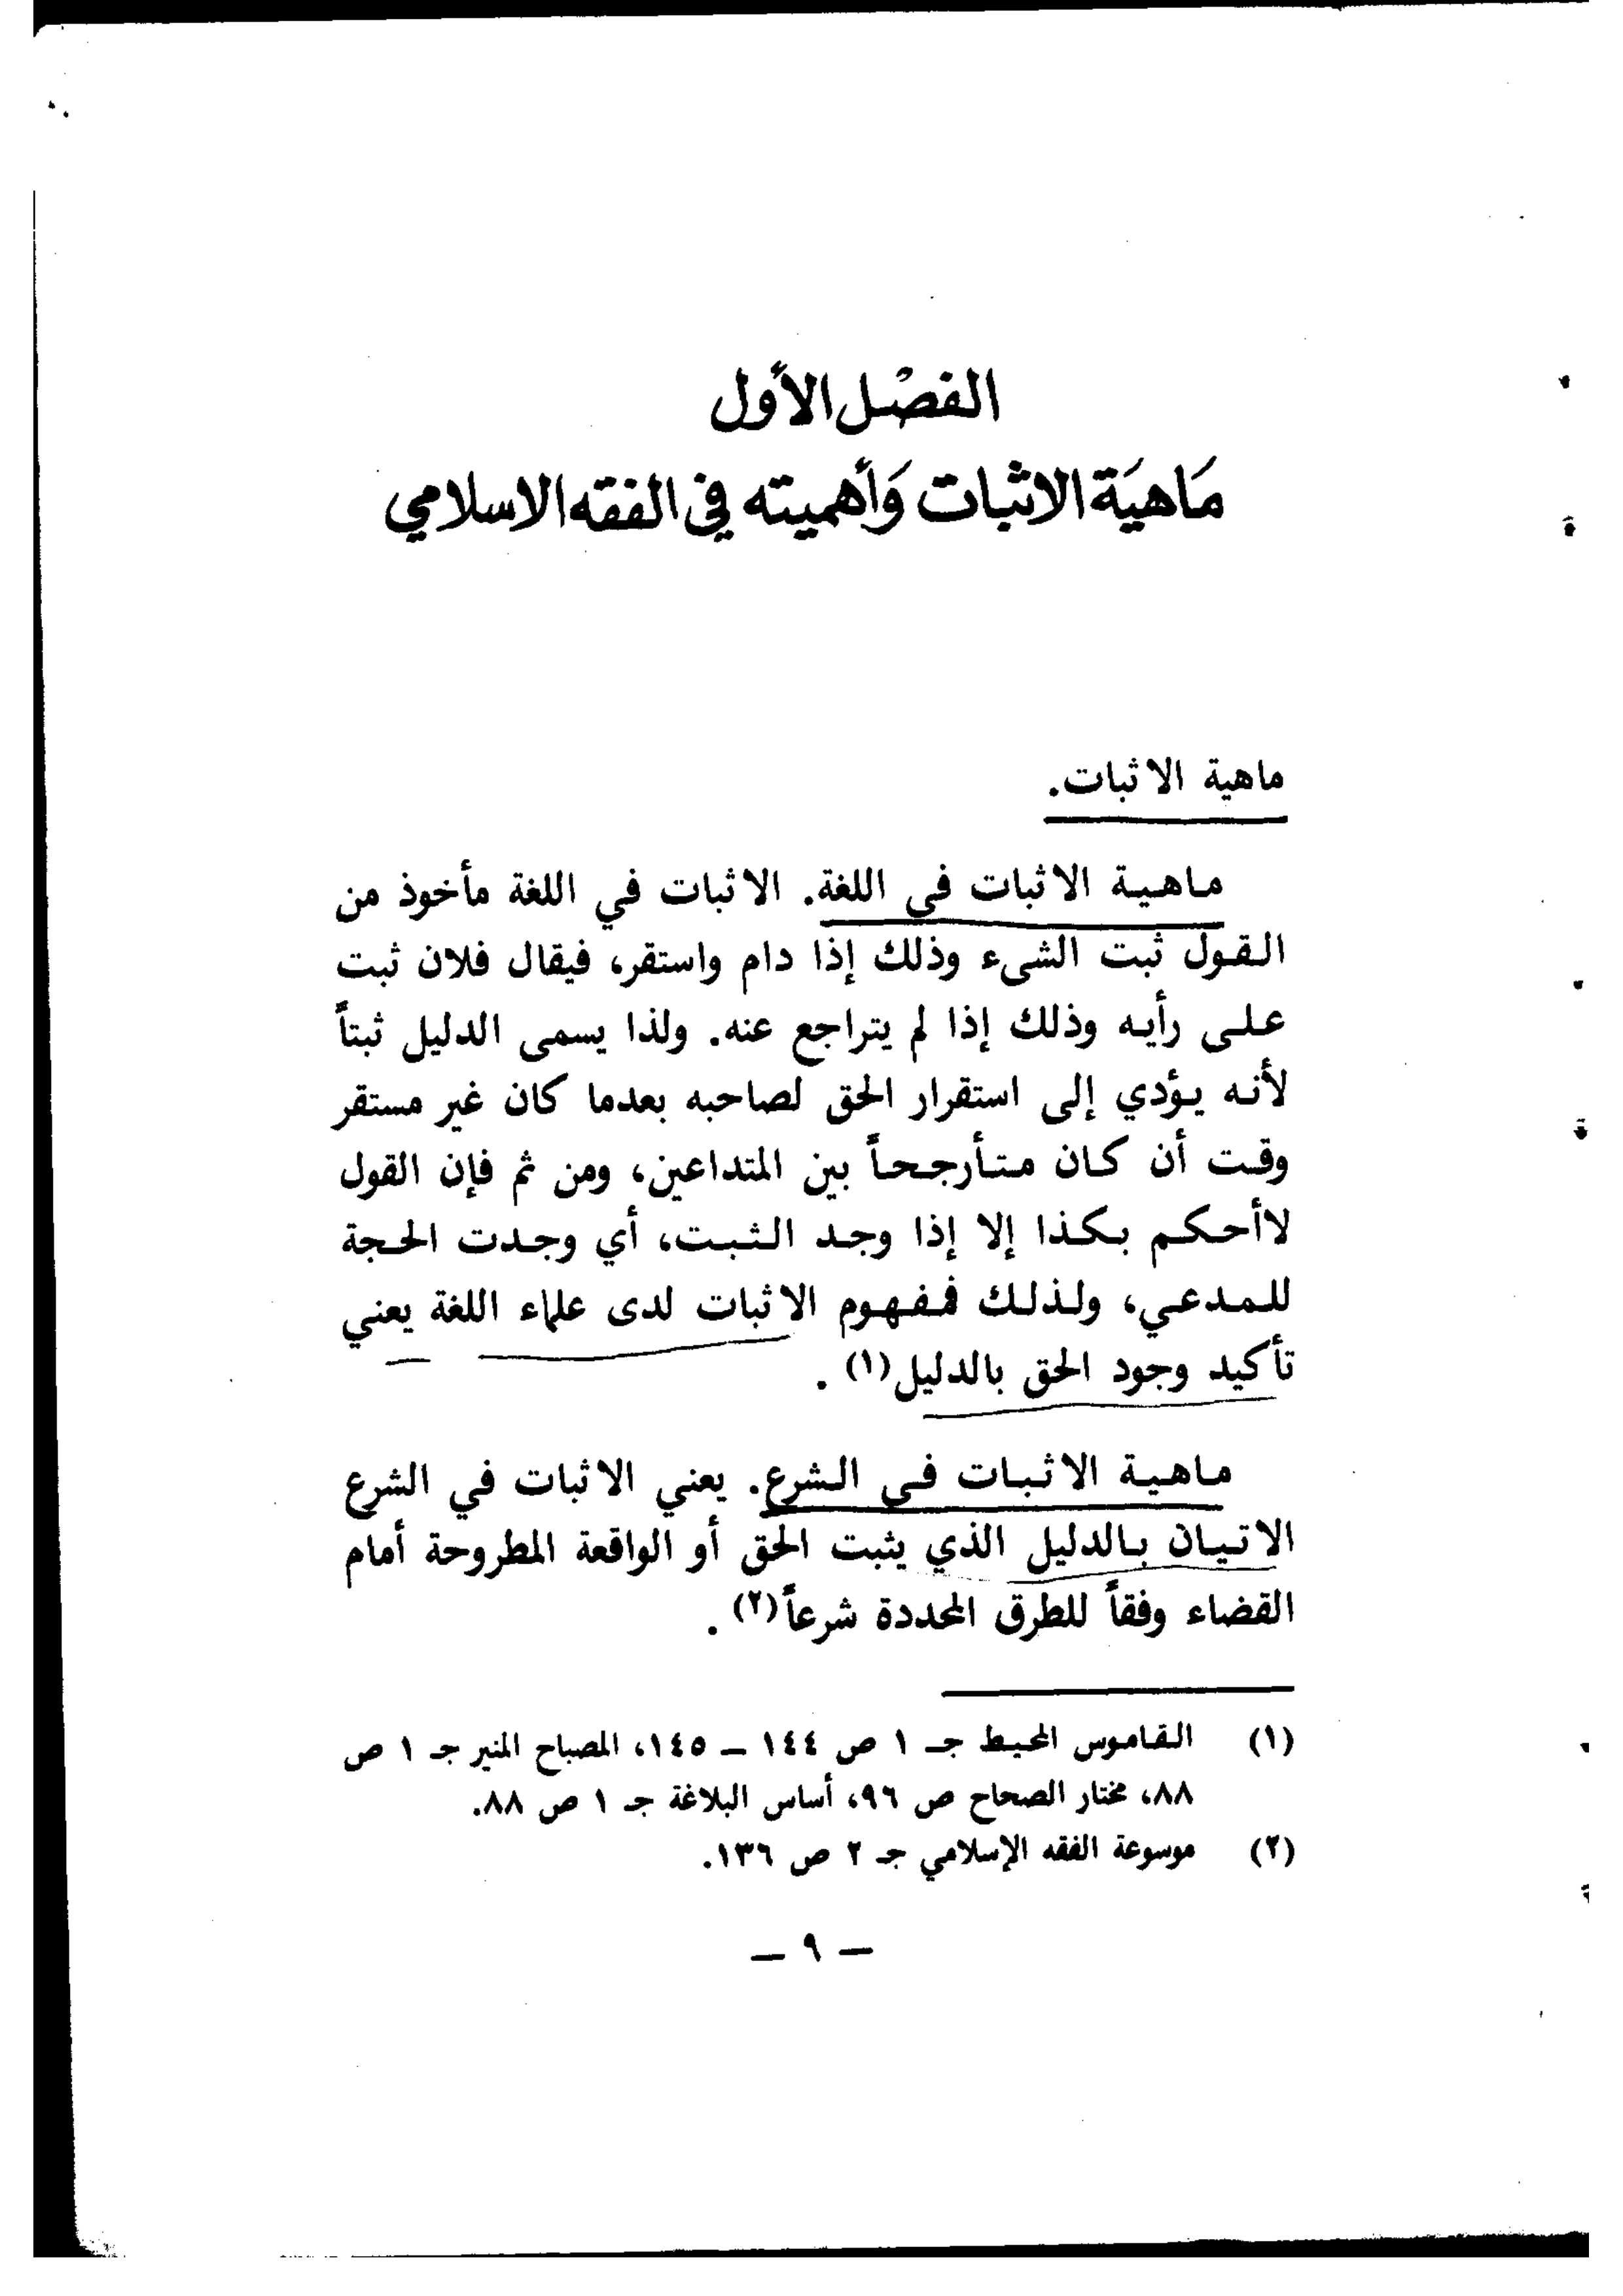 الفصْل الأول
مَاهيَة الاثبات وَأهميته في الفقه الاسلامي
ماهية الاثبات.
ماهية الاثبات في اللغة. الاثبات في اللغة مأخوذ من
القول ثبت الشىء وذلك إذا دام واستقر، فيقال فلان ثبت
على رأيه وذلك إذا لم يتراجع عنه. ولذا يسمى الدليل ثبتاً
لأنه يؤدي إلى استقرار الحق لصاحبه بعدما كان غير مستقر
وقت أن كان متأرجحاً بين المتداعين، ومن ثم فإن القول
لاأحكم بكذا إلا إذا وجد الثبت، أي وجدت الحجة
للمدعي، ولذلك فمفهوم الاثبات لدى علماء اللغة يعني
تأكيد وجود الحق بالدليل(١) .
ماهية الاثبات في الشرع. يعني الاثبات في الشرع
الاتيان بالدليل الذي يثبت الحق أو الواقعة المطروحة أمام
القضاء وفقاً للطرق المحددة شرعاً(٢) .
(١) القاموس المحيط جـ ١ ص ١٤٤ – ١٤٥، المصباح المنير جـ ١ ص
٨٨، مختار الصحاح ص ٩٦، أساس البلاغة جـ ١ ص ٨٨.
(٢) موسوعة الفقه الإسلامي جـ ٢ ص ١٣٦.
– ٩ –